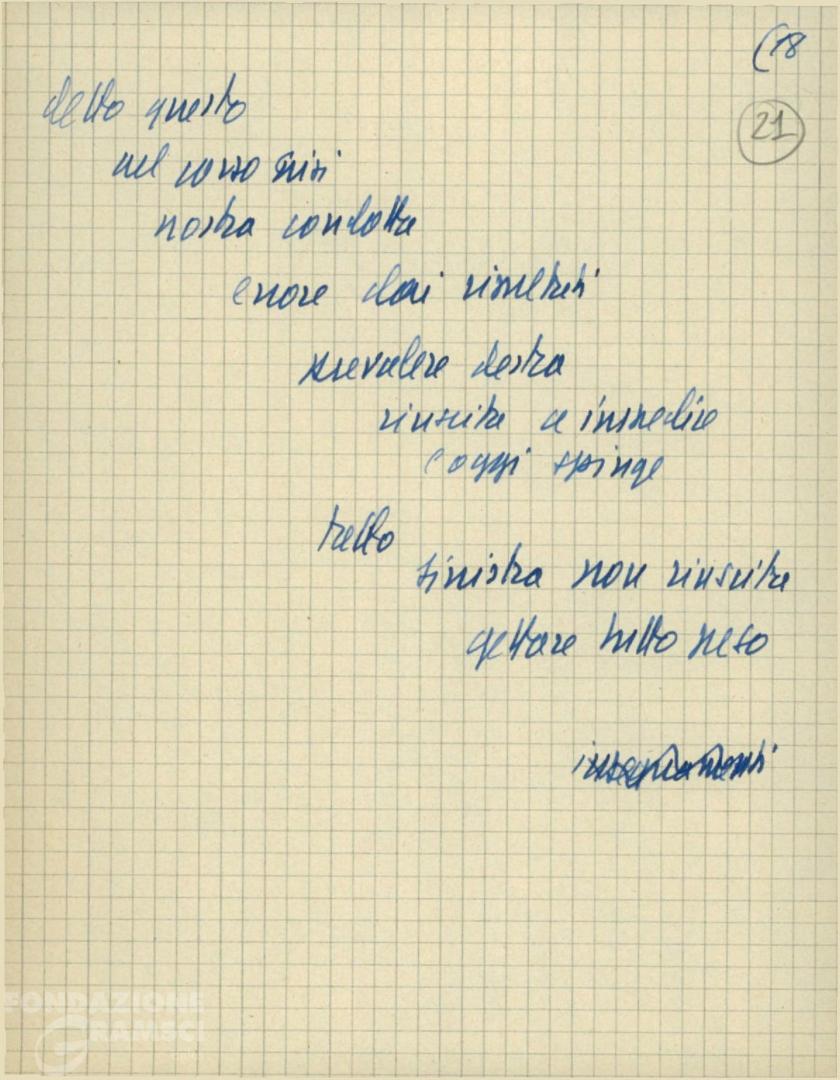 (18
21
detto questo
nel corso crisi
nostra condotta
dai risultati
prevalere destra
riuscita a impedire
e oggi spinge
sinistra non riuscita
gettare tutto peso
insegnamenti
FONDAZIONE
GRAMSCI